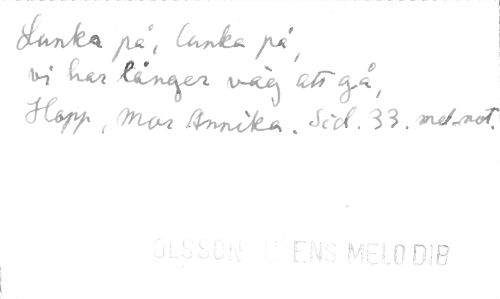 Lunka på, lunka på,
vi har långer väg att gå,
Hopp, Mor Annika. Sid. 33. med not.
OLSSON ENS MELODIB